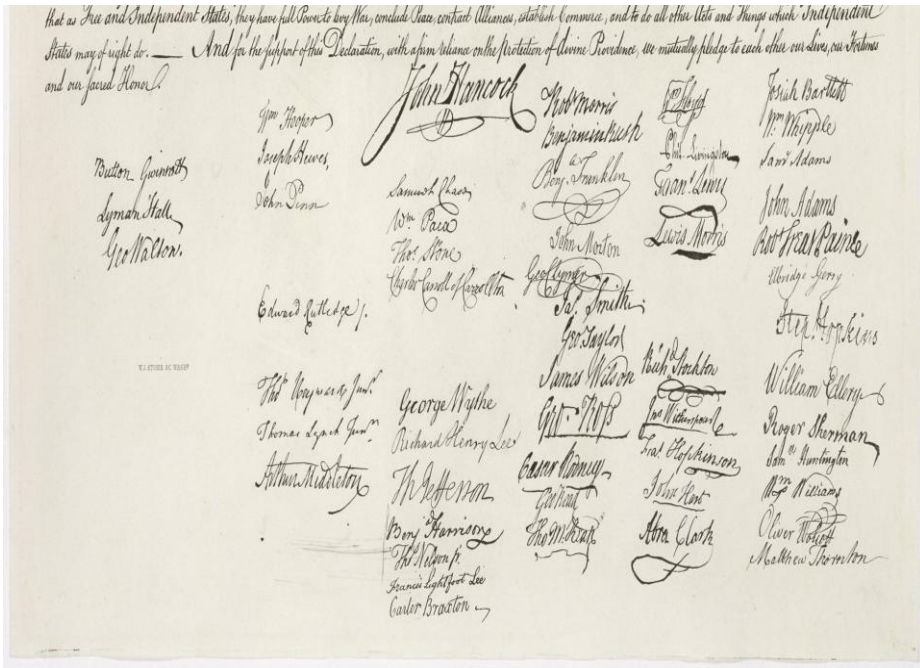 that as Free and Independent States, they have full Power to levy War, conclude Peace, contract Alliances, establish Commerce, and to do all other Acts and Things which Independent
States may of right do. — And for the support of this Declaration, with a firm reliance on the protection of divine Providence, we mutually pledge to each other our Lives, our Fortunes
and our sacred Honor.
John Hancock
Button Gwinnett
Lyman Hall
Geo Walton.
Wm Hooper
Joseph Hewes,
John Penn
Edward Rutledge /.
Thos Heyward Junr.
Thomas Lynch Junr.
Arthur Middleton
Samuel Chase
Wm. Paca
Thos. Stone
Charles Carroll of Carrollton
George Wythe
Richard Henry Lee
Th Jefferson
Benja Harrison
Thos Nelson jr.
Francis Lightfoot Lee
Carter Braxton
Robt Morris
Benjamin Rush
Benja. Franklin
John Morton
Geo Clymer
Jas. Smith.
Geo. Taylor
James Wilson
Geo. Ross
Caesar Rodney
Geo Read
Tho M:Kean
Wm Floyd
Phil. Livingston
Frans. Lewis
Lewis Morris
Richd. Stockton
Jno Witherspoon
Fras. Hopkinson
John Hart
Abra Clark
Josiah Bartlett
Wm. Whipple
Saml Adams
John Adams
Robt Treat Paine
Elbridge Gerry
Step. Hopkins
William Ellery
Roger Sherman
Saml Huntington
Wm Williams
Oliver Wolcott
Matthew Thornton